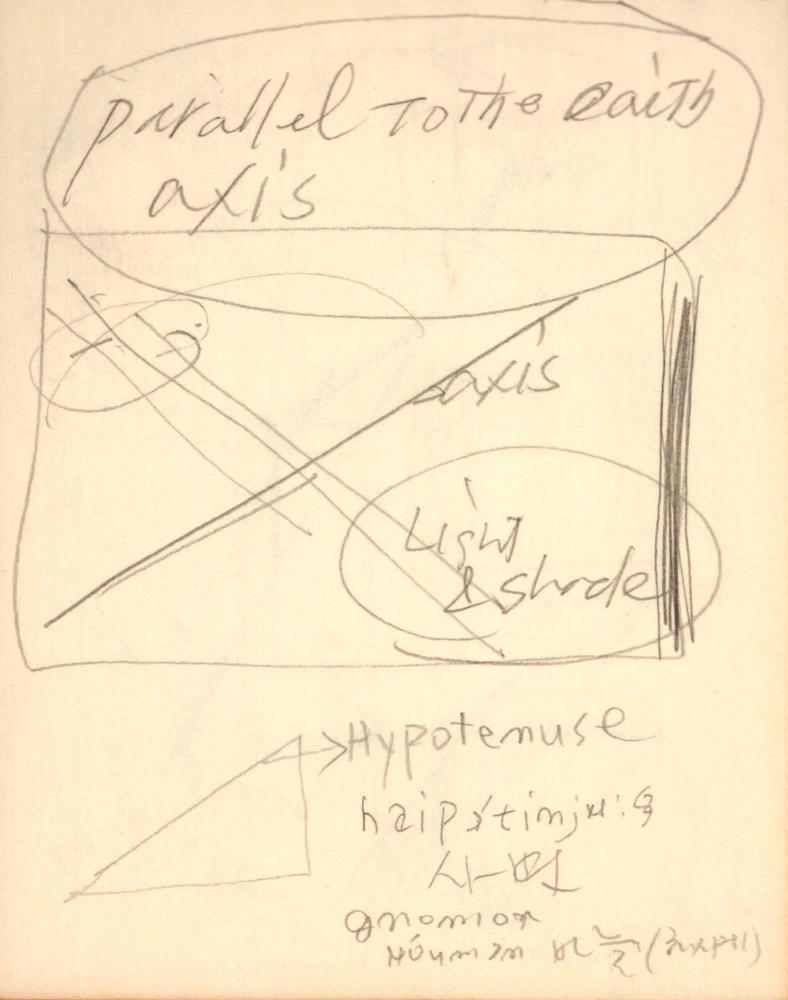 parallel To The earth
axis
axis
Light
& shade
Hypotenuse
사변
gnomon
바늘(해시계)